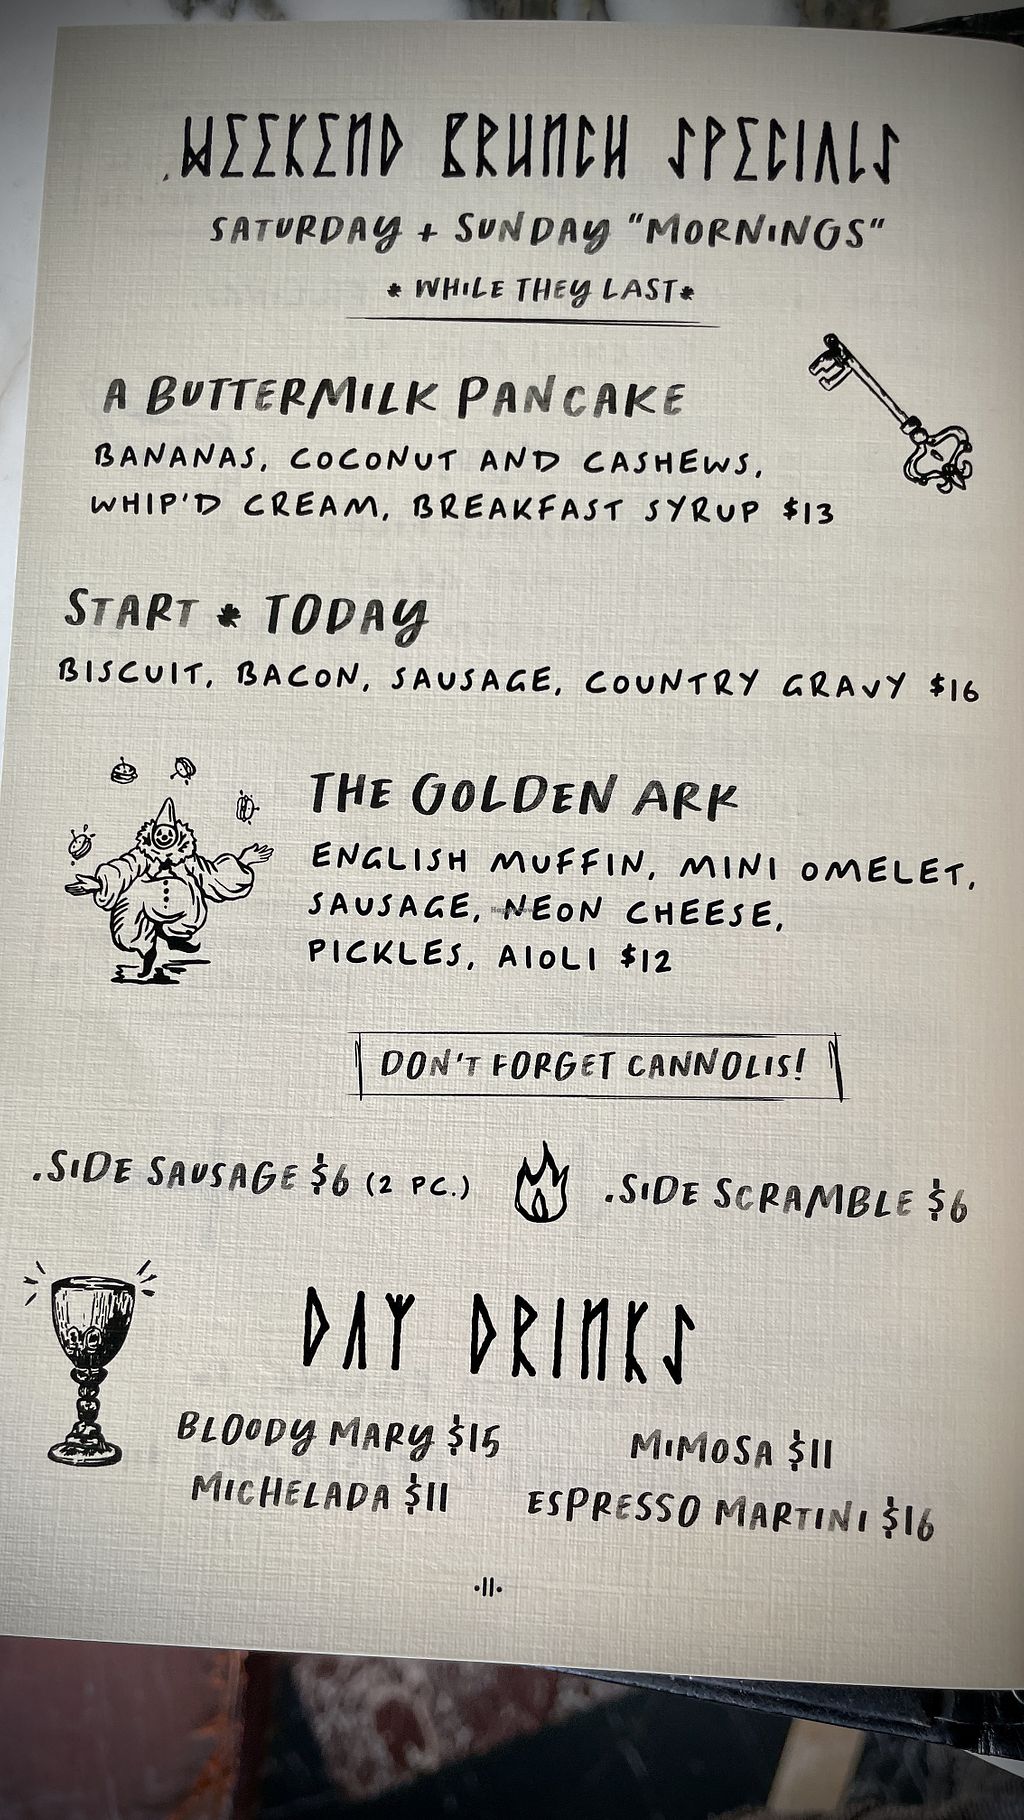 WEEKEND BRUNCH SPECIALS
SATURDAY + SUNDAY "MORNINGS"
* WHILE THEY LAST*
A BUTTERMILK PANCAKE
BANANAS, COCONUT AND CASHEWS,
WHIP'D CREAM, BREAKFAST SYRUP $13
START * TODAY
BISCUIT, BACON, SAUSAGE, COUNTRY GRAVY $16
THE GOLDEN ARK
ENGLISH MUFFIN, MINI OMELET,
SAUSAGE, NEON CHEESE,
PICKLES, AIOLI $12
DON'T FORGET CANNOLIS!
.SIDE SAUSAGE $6 (2 PC.)
.SIDE SCRAMBLE $6
DAY DRINKS
BLOODY MARY $15
MIMOSA $11
MICHELADA $11
ESPRESSO MARTINI $16
·11·